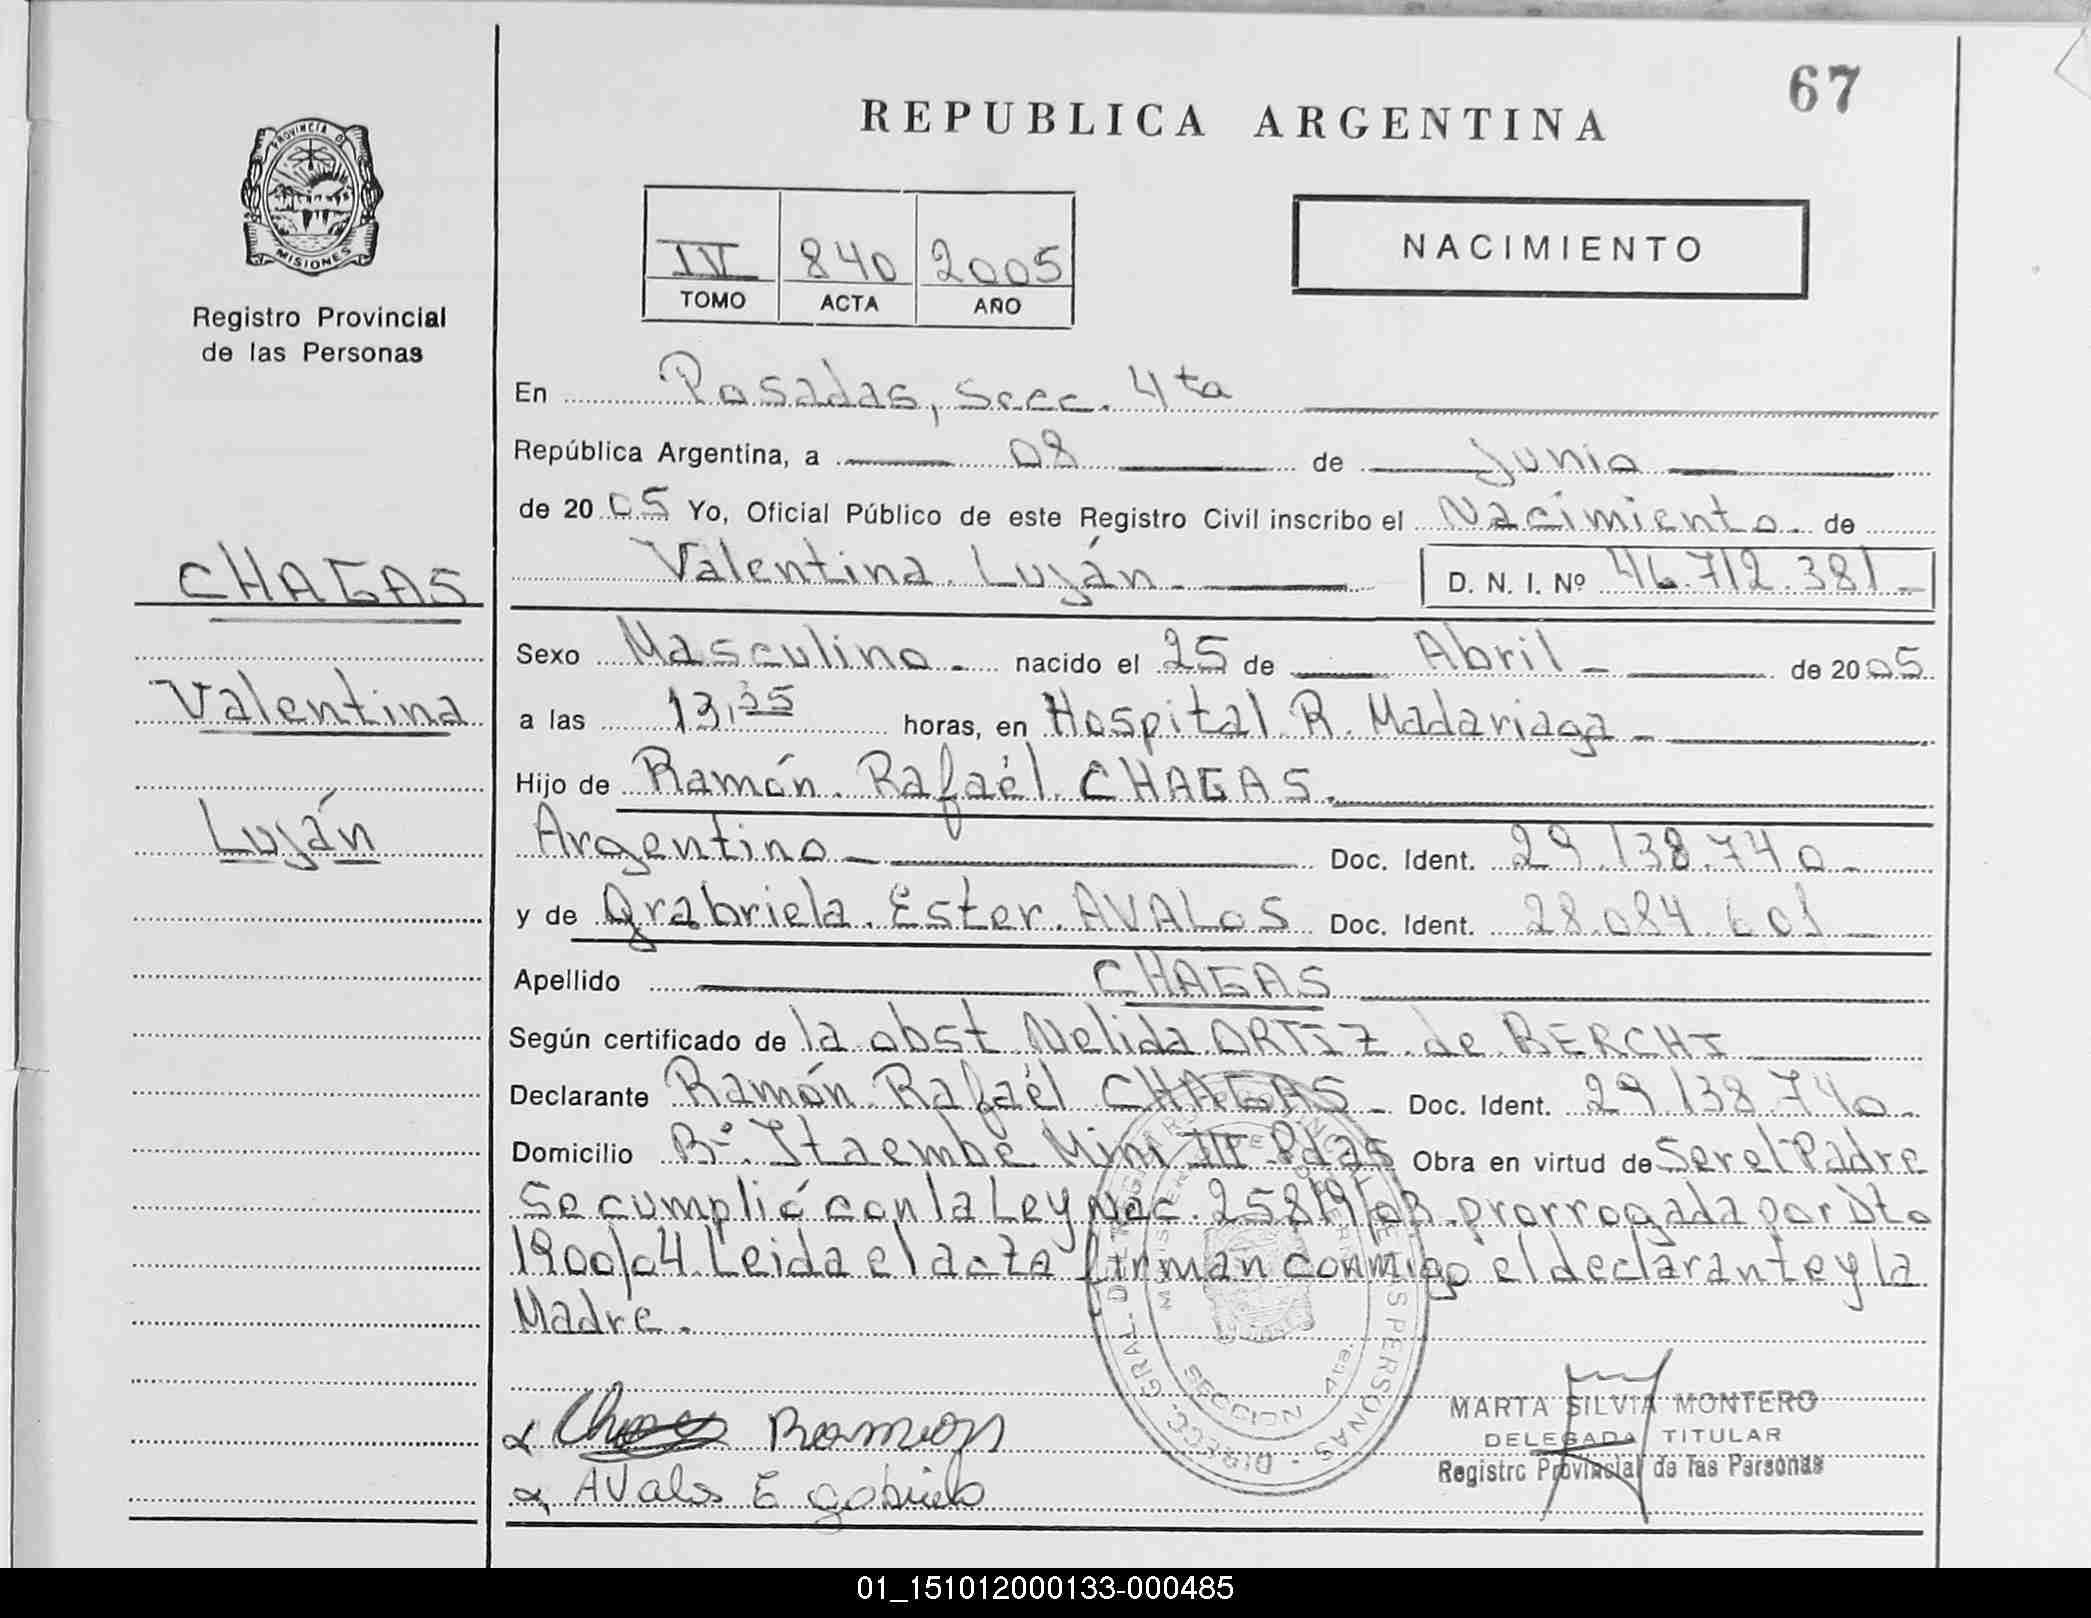 67
REPUBLICA ARGENTINA
PROVINCIA DE
MISIONES
Registro Provincial
de las Personas
IV 840 2005
TOMO ACTA AÑO
NACIMIENTO
En Posadas, Secc. 4ta
República Argentina, a 08 de Junio
de 2005 Yo, Oficial Público de este Registro Civil inscribo el Nacimiento de
CHAGAS
Valentina Luján D. N. I. Nº 46.712.381
Sexo Masculino nacido el 25 de Abril de 2005
Valentina
a las 13,35 horas, en Hospital R. Madariaga
Hijo de Ramón Rafaél CHAGAS
Luján
Argentino Doc. Ident. 29.138.740
y de Grabriela Ester AVALOS Doc. Ident. 28.084.601
Apellido CHAGAS
Según certificado de la obst Nelida ORTIZ de BERCHI
Declarante Ramón Rafaél CHAGAS Doc. Ident. 29.138.740
Domicilio Bº Itaembé Miní III Pdas Obra en virtud de Ser el Padre
Se cumplió con la Ley Nac. 25819/03 prorrogada por Dto
1900/04 Leida el acta firman conmigo el declarante y la
Madre.
DIRECC. GRAL. DE PERSONAS
SECCION 4ta.
Ramon
Avalos E gabriela
MARTA SILVIA MONTERO
DELEGADA TITULAR
Registro Provincial de las Personas
01_151012000133-000485